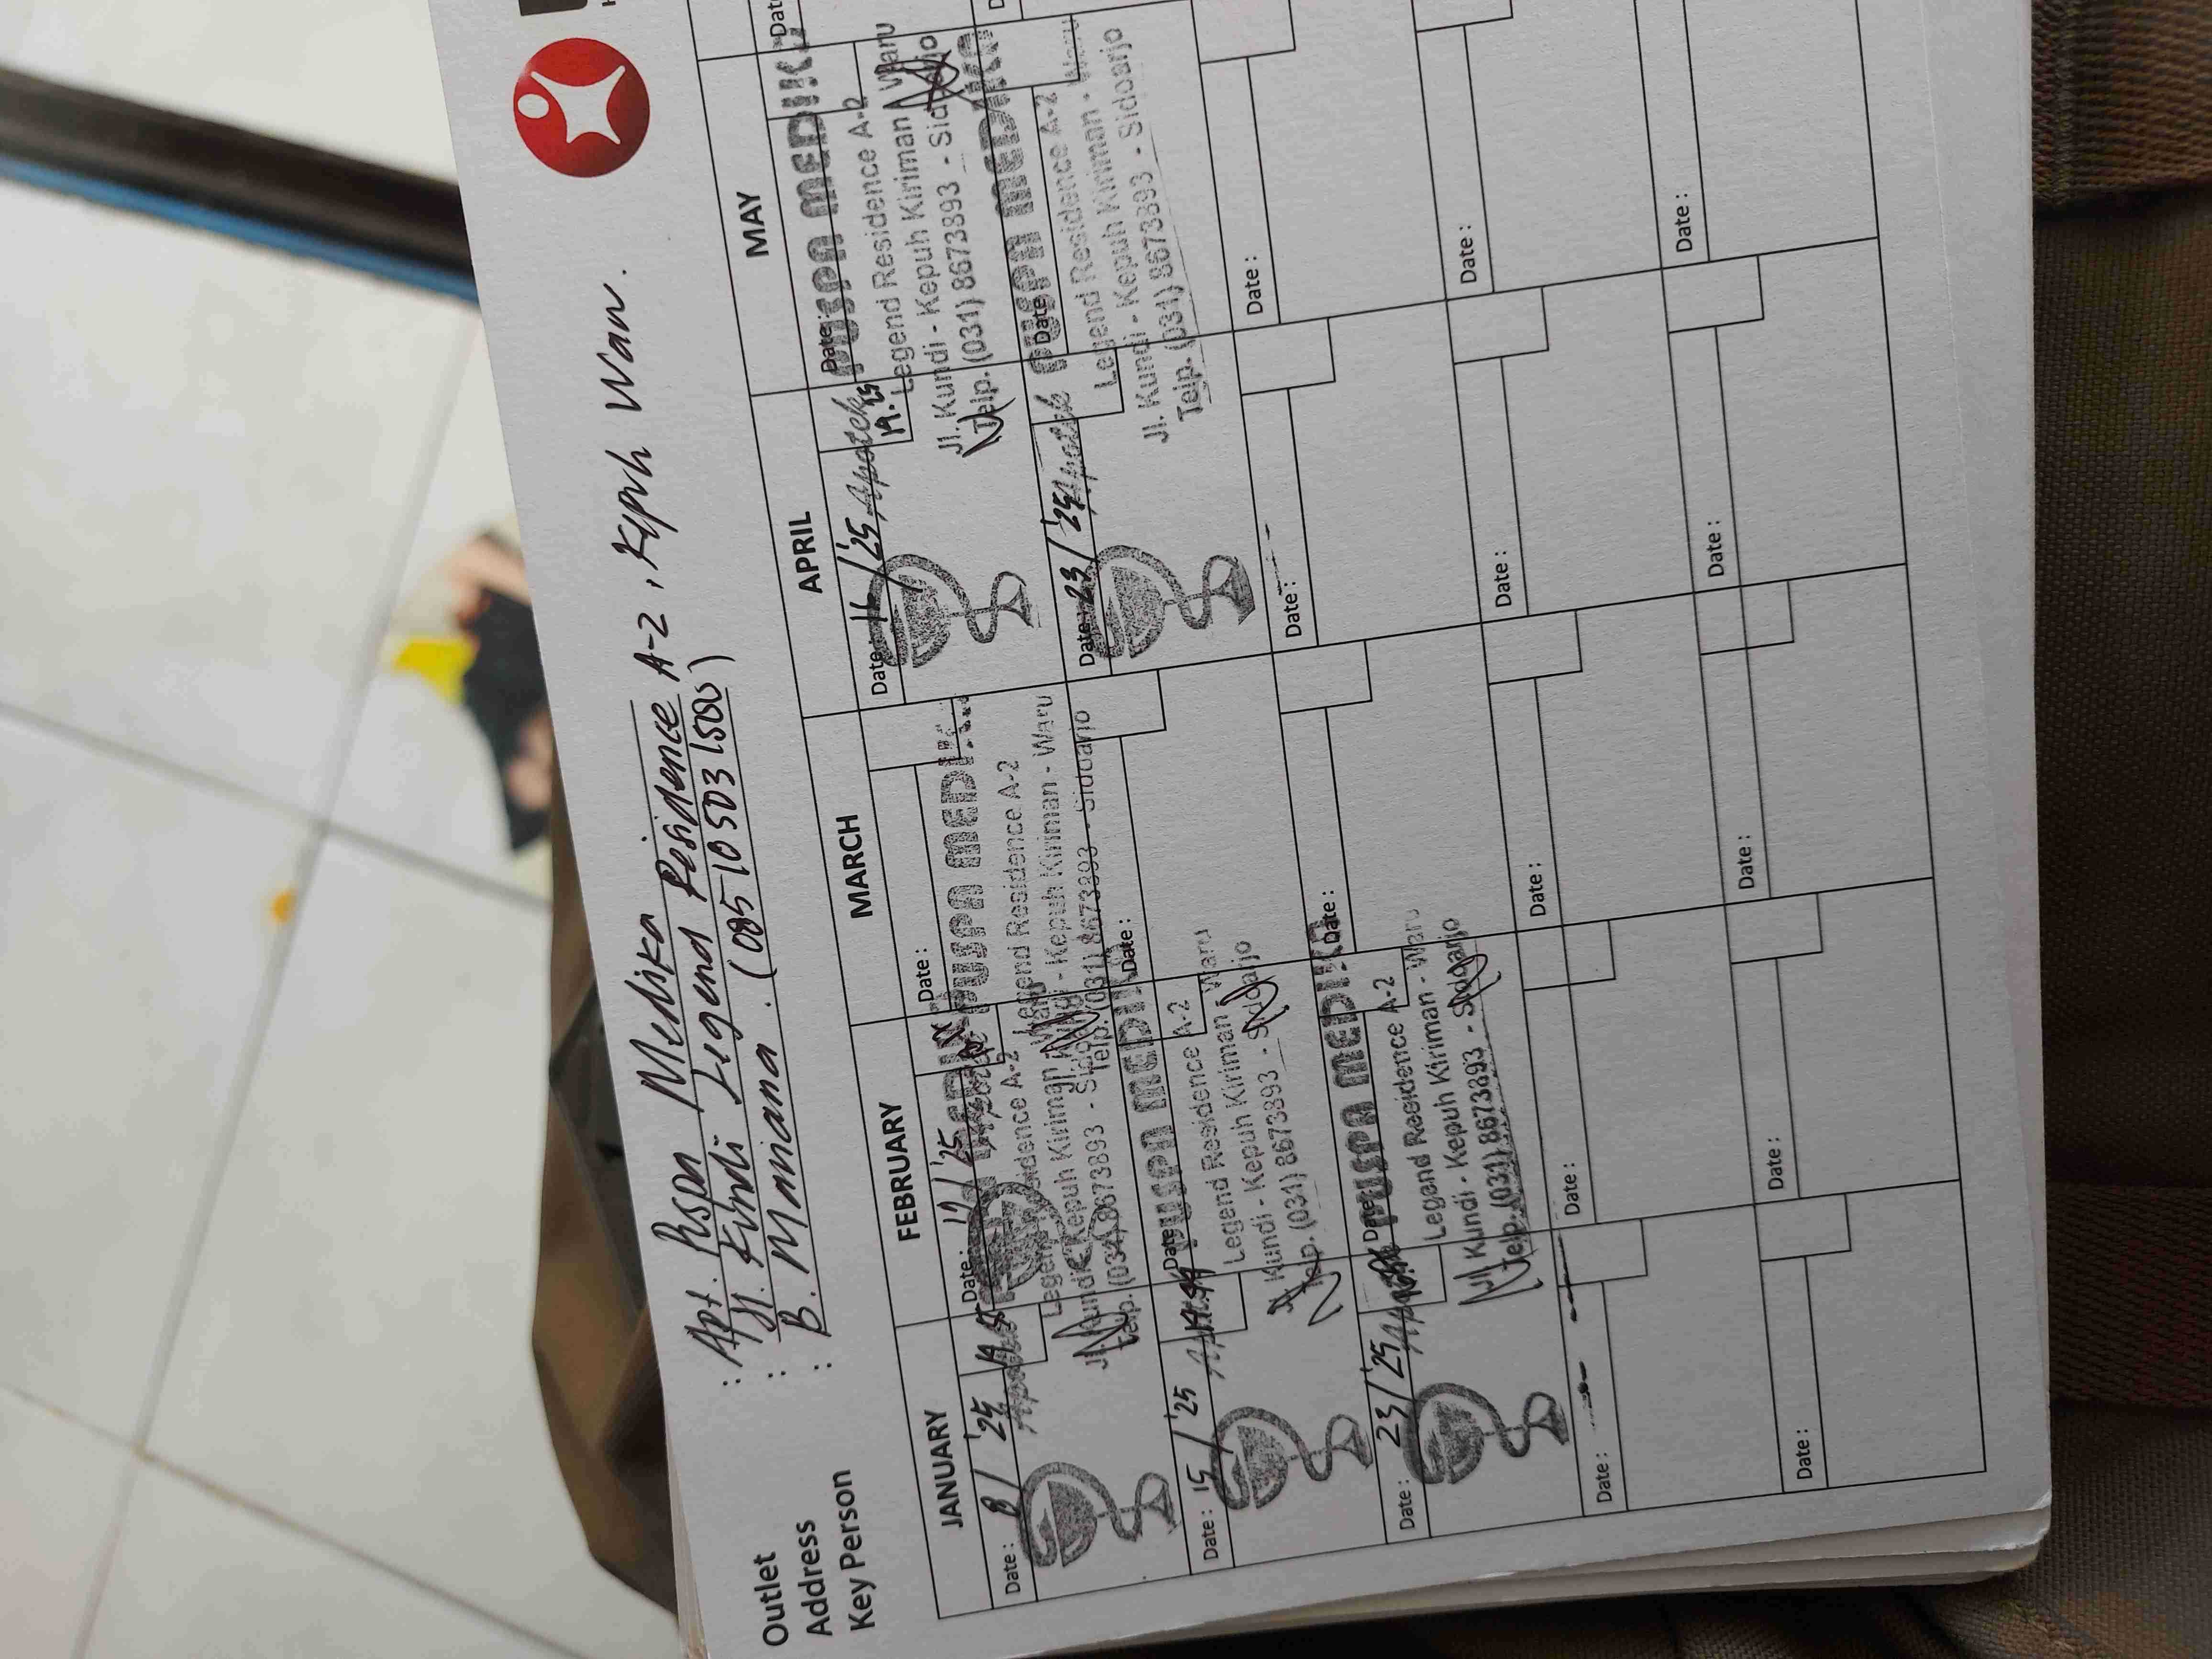 Outlet : Apt. Puspa Medika
Address : Jl. Kundi Legend Residence A-2, Kepuh Waru.
Key Person : B. Mariana. (085 10 503 1500)
JANUARY FEBRUARY MARCH APRIL MAY
Date : 8/'25
Date : 17/'25
Date :
Date : 11/'25
Date :
Apotek
PUSPA MEDIKA
Legend Residence A-2
Jl. Kundi - Kepuh Kiriman - Waru
Telp. (031) 8673893 - Sidoarjo
Apotek
PUSPA MEDIK
Legend Residence A-2
Kepuh Kiriman - Waru
Telp. (031) 8673893 - Sidoarjo
Apotek 19.25
PUSPA MEDIKA
Legend Residence A-2
Jl. Kundi - Kepuh Kiriman - Waru
Telp. (031) 8673893 - Sidoarjo
Date : 15/'25
Date
Date :
Date 23/'25
Date
Apotek
PUSPA MEDIKA
Legend Residence A-2
Jl. Kundi - Kepuh Kiriman - Waru
Telp. (031) 8673893 - Sidoarjo
Apotek
PUSPA MEDIKA
Legend Residence A-2
Jl. Kundi - Kepuh Kiriman - Waru
Telp. (031) 8673893 - Sidoarjo
Date : 23/'25
Date
Date :
Date :
Date :
Apotek
PUSPA MEDIKA
Legend Residence A-2
Jl. Kundi - Kepuh Kiriman - Waru
Telp. (031) 8673893 - Sidoarjo
Date :
Date :
Date :
Date :
Date :
Date :
Date :
Date :
Date :
Date :